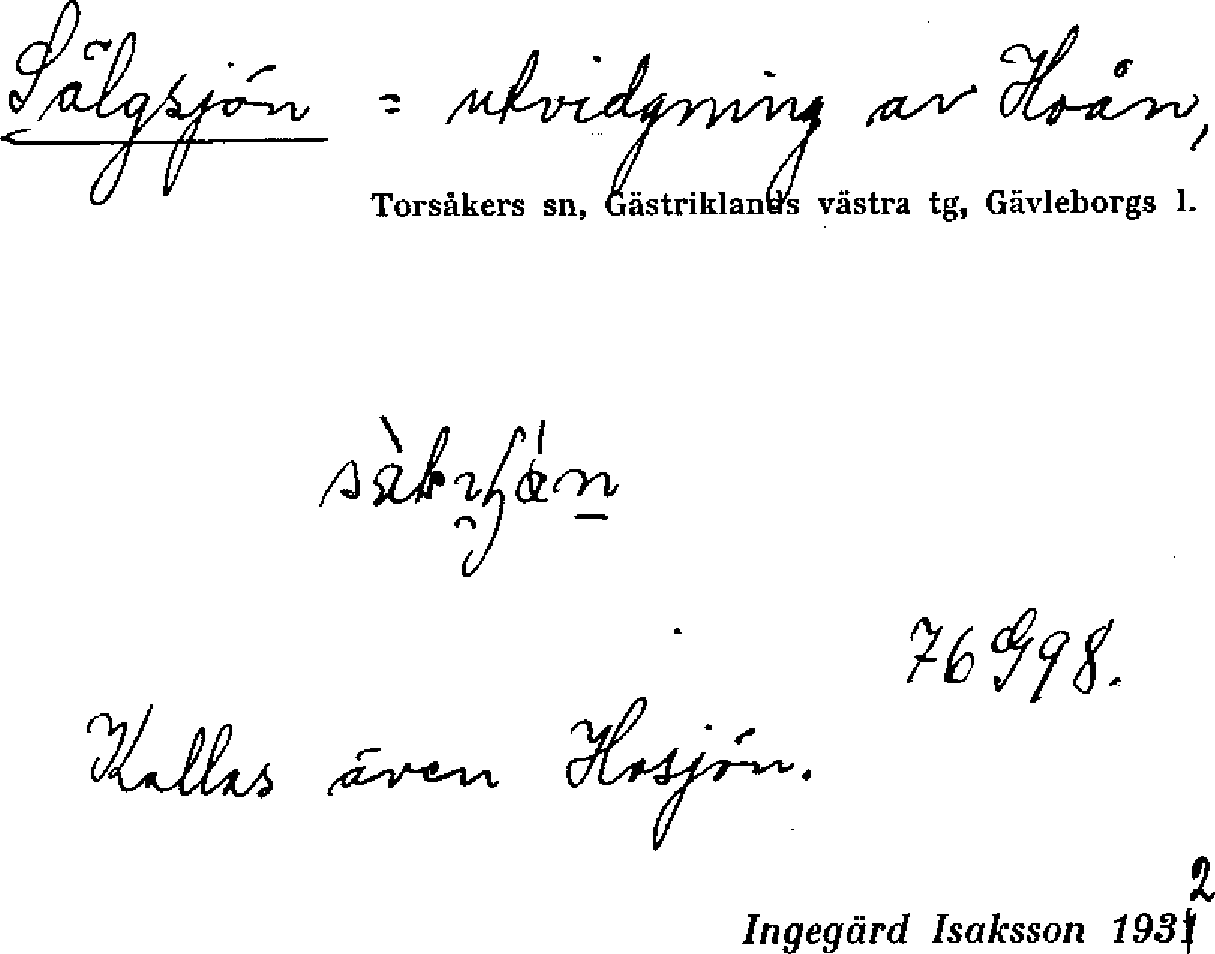 Sälgsjön = utvidgning av Hoån,
Torsåkers sn, Gästriklands västra tg, Gävleborgs l.
76 G 98.
Kallas även Hosjön.
Ingegärd Isaksson 1932